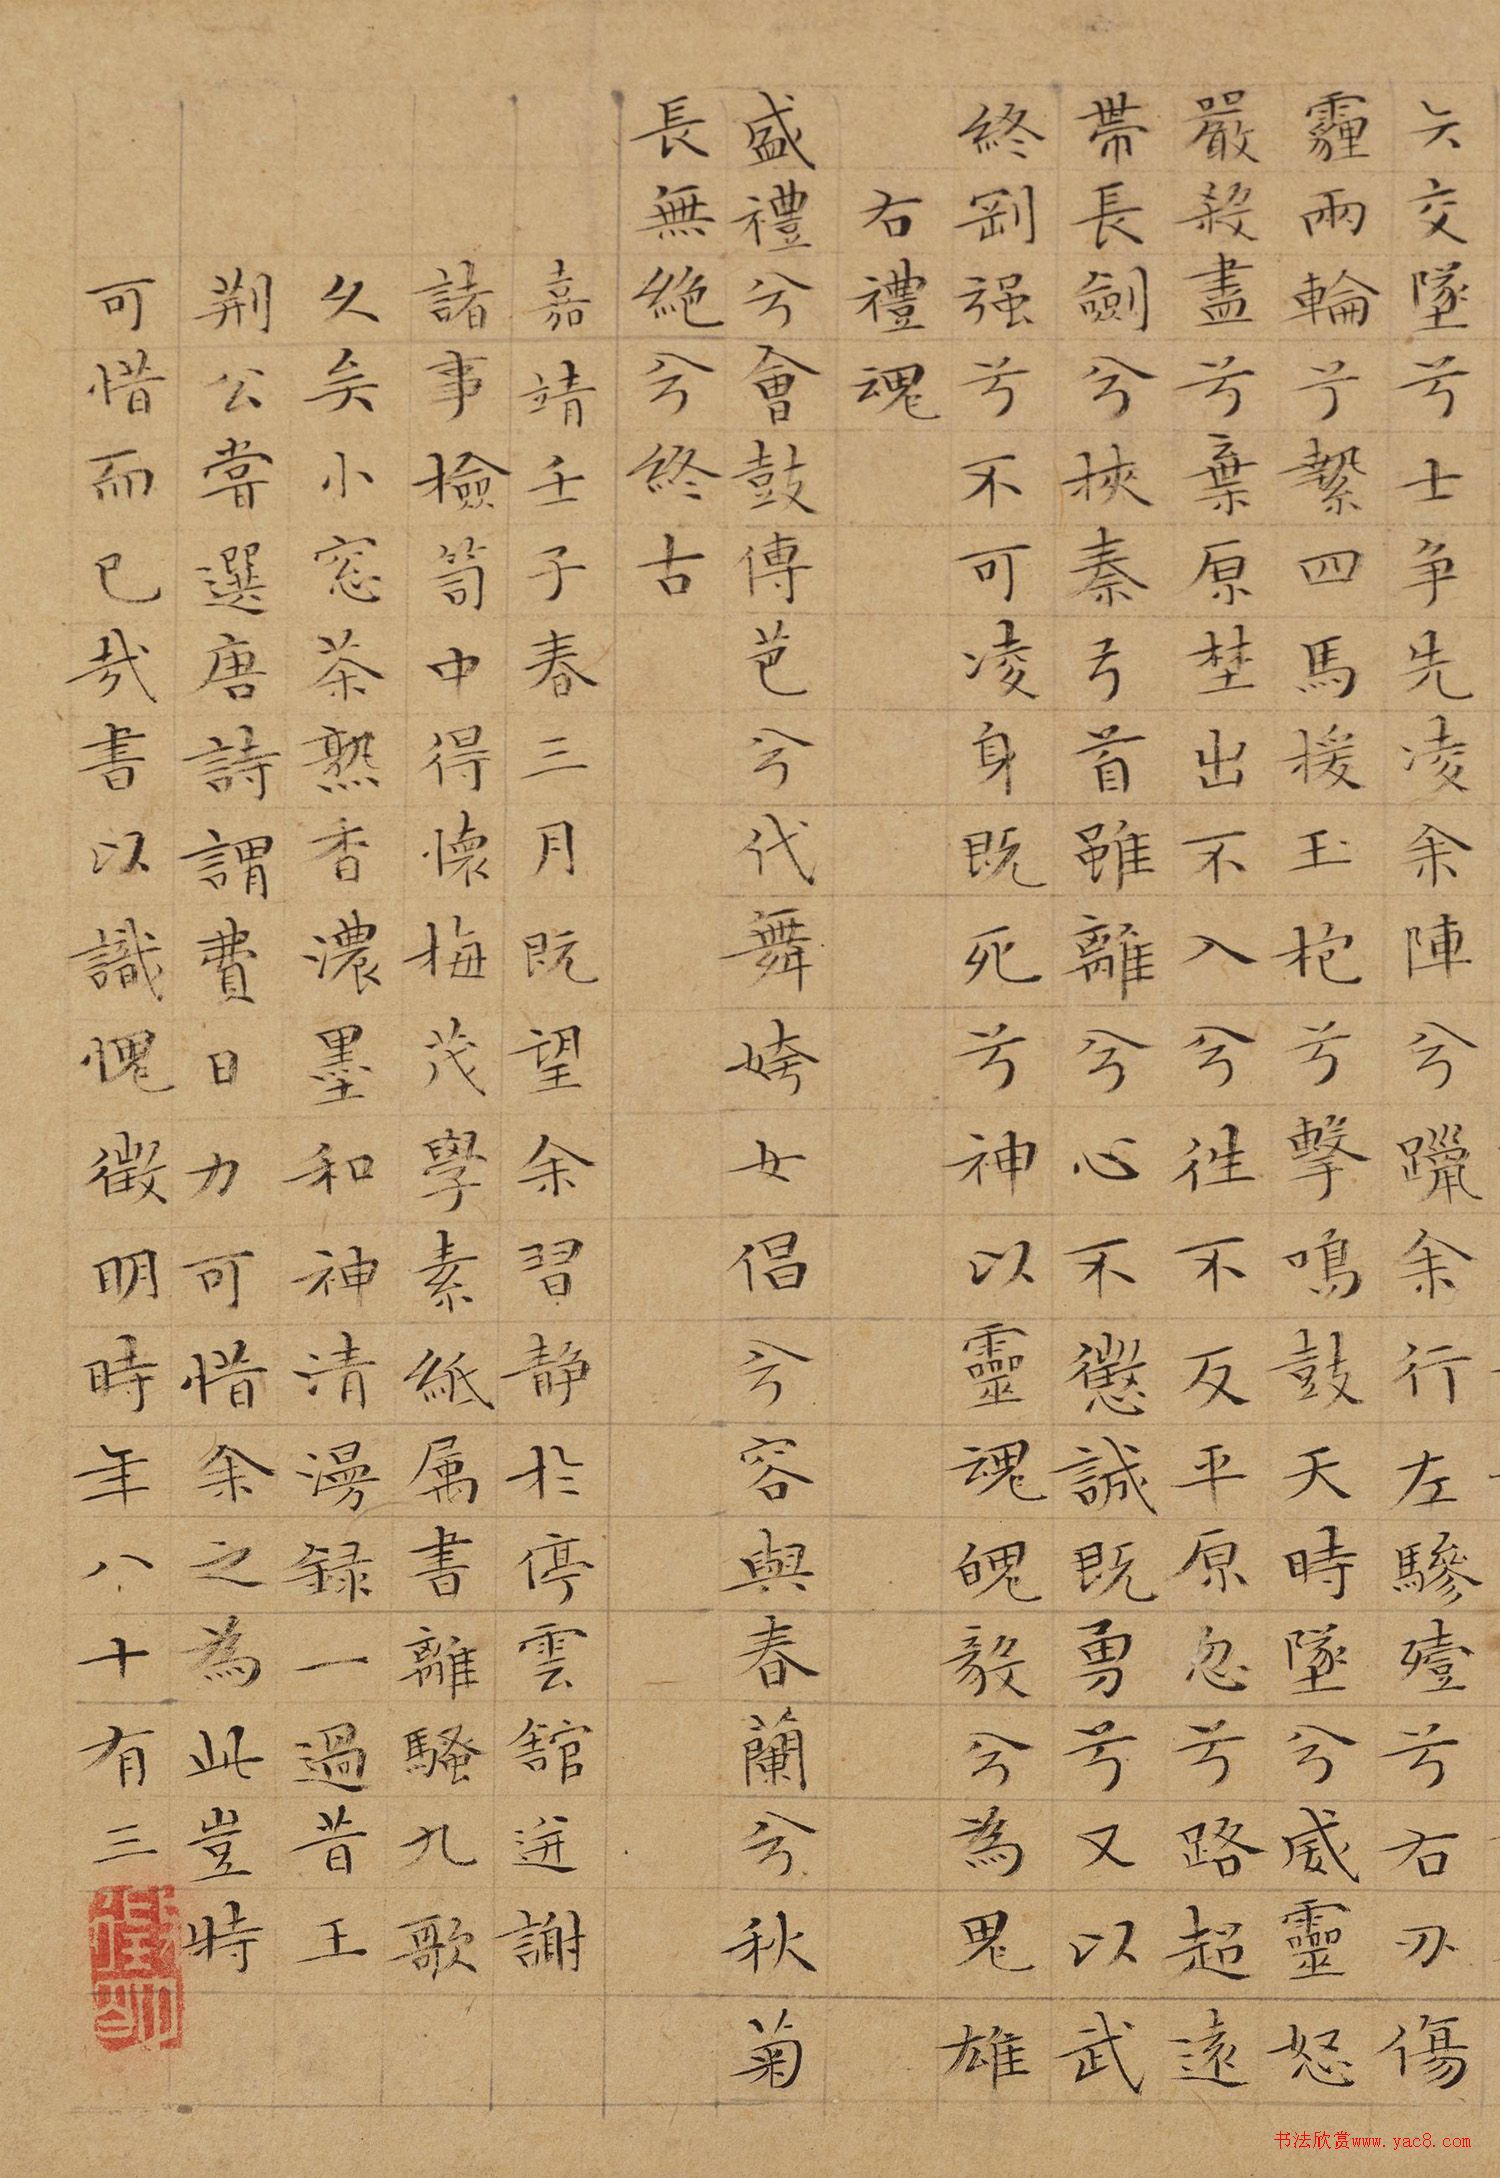 矢交墜兮士爭先凌余陣兮躐余行左驂殪兮右刃傷
霾兩輪兮縶四馬援玉枹兮擊鳴鼓天時墜兮威靈怒
嚴殺盡兮棄原埜出不入兮往不反平原忽兮路超遠
帶長劍兮挾秦弓首雖離兮心不懲誠既勇兮又以武
終剛强兮不可凌身既死兮神以靈魂魄毅兮為鬼雄
右禮魂
盛禮兮會鼓傳芭兮代舞姱女倡兮容與春蘭兮秋菊
長無絶兮終古
嘉靖壬子春三月既望余習静於停雲舘迸謝
諸事檢笥中得懷梅茂學素紙属書離騷九歌
久矣小窓茶熟香濃墨和神清漫録一過昔王
荆公嘗選唐詩謂費日力可惜余之為此豈時
可惜而已哉書以識愧徵明時年八十有三
徵明
书法欣赏www.yac8.com